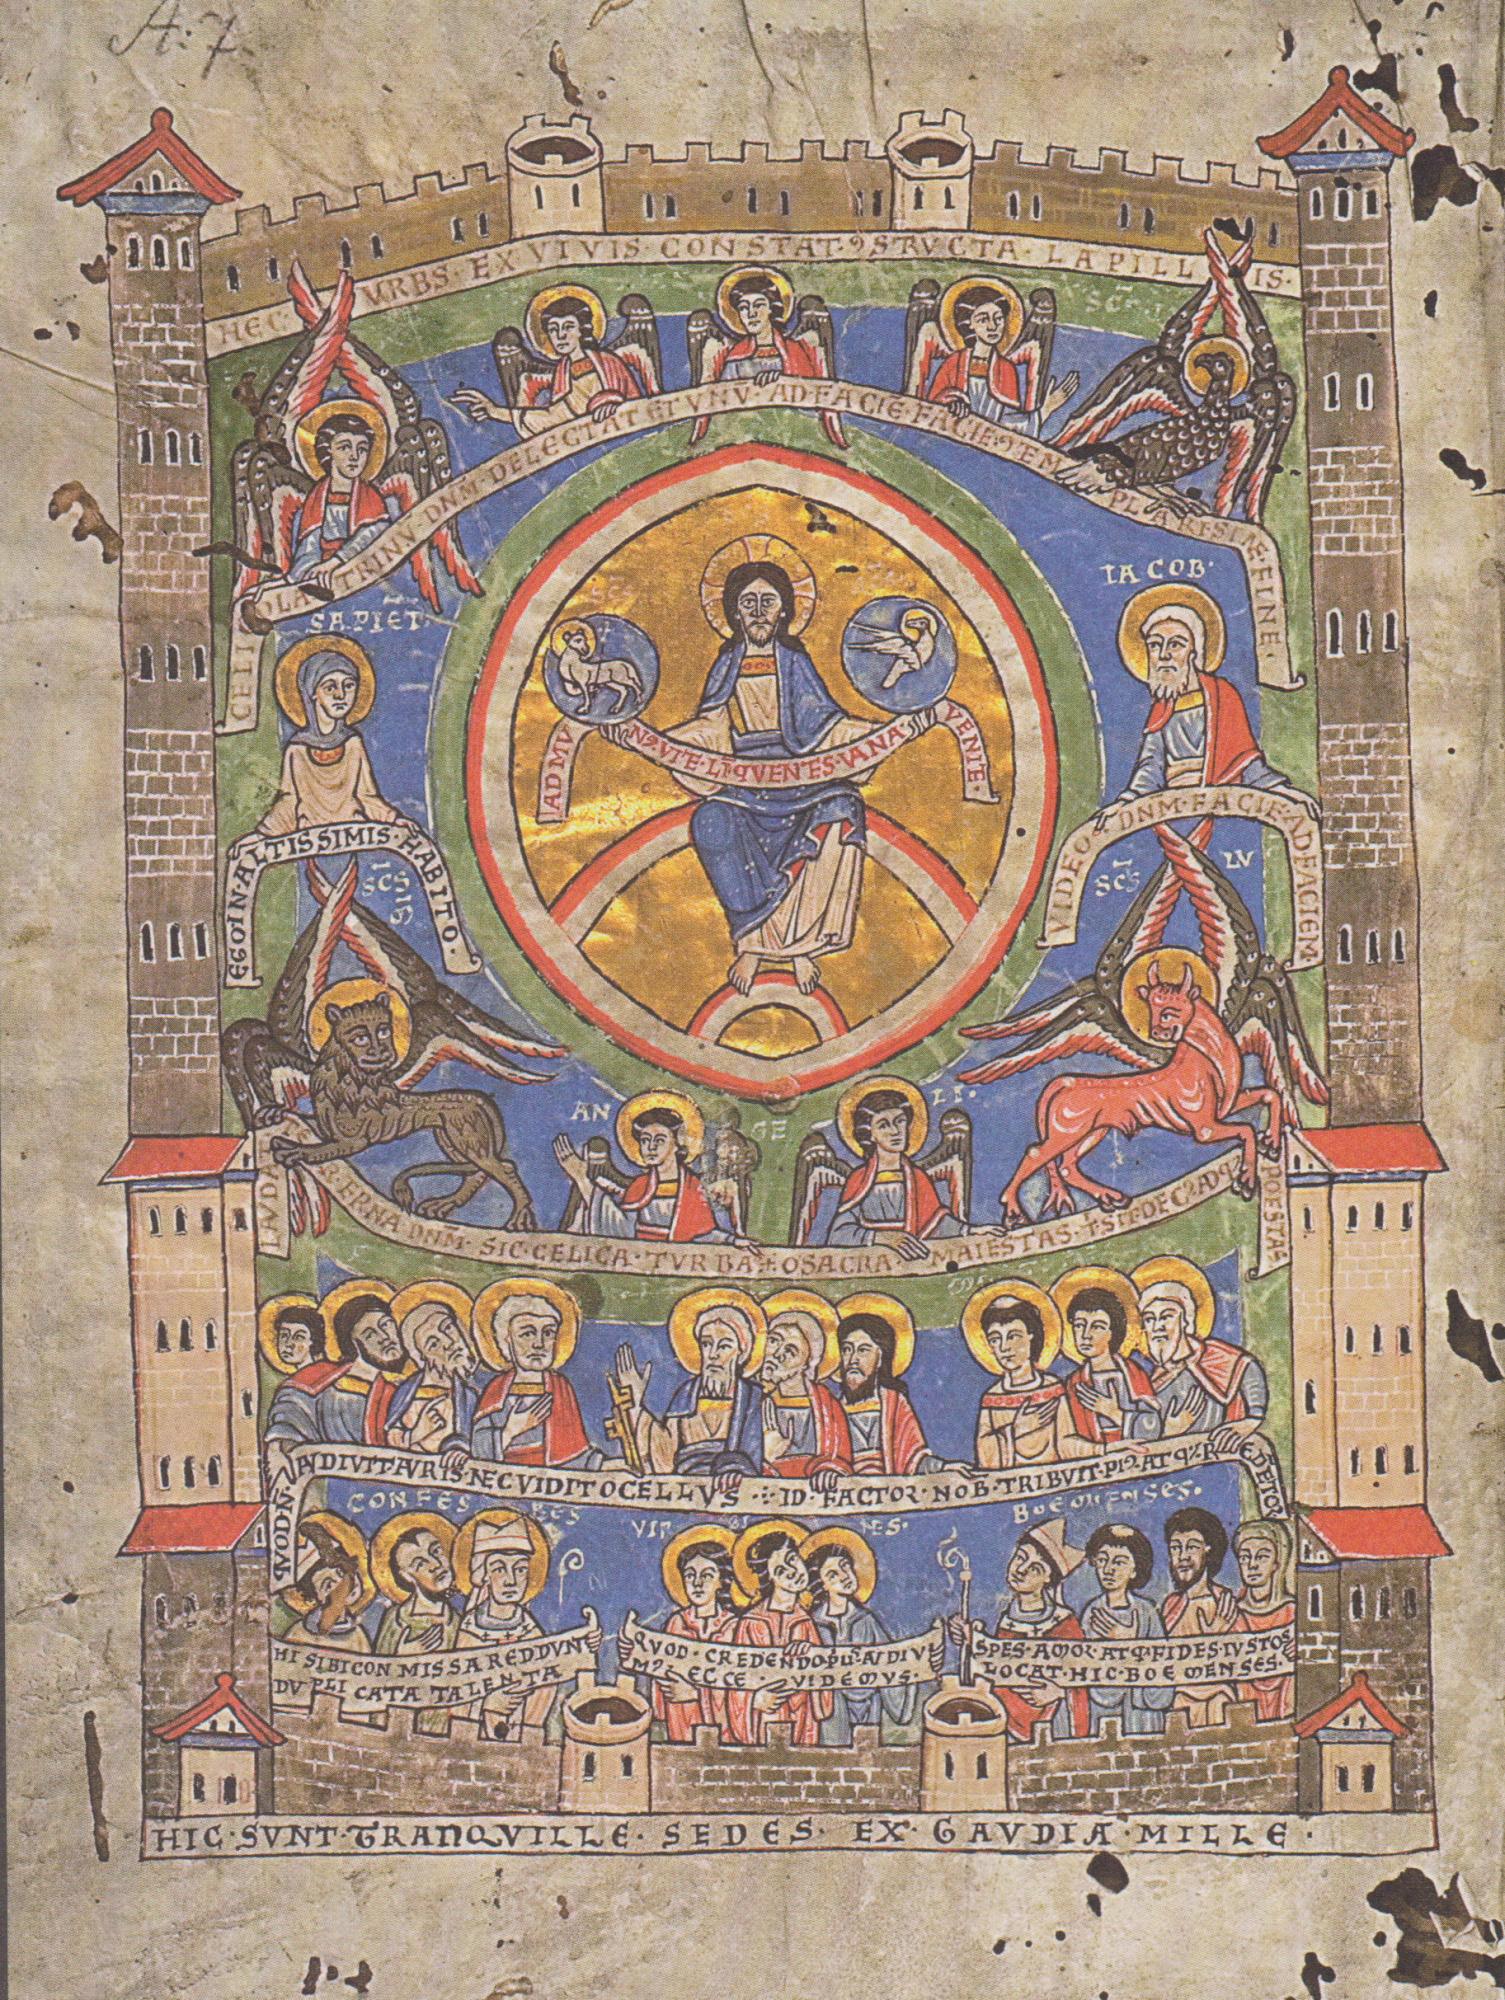 A: 7.
HEC · VRBS · EX VIVIS · CONSTAT · ꝯSTRVCTA · LAPILLIS ·
SC̄
CELI TRINV̄ · DNM · DELECTAT ET VNV̄ · AD · FACIE · FACIE · FINE ·
SAPIET̄
IACOB ·
AD MV NꝰVꝰTE · LĪQVENTES · VANA VENITE ·
EGO IN · ALTISSIMIS · HABITO ·
VIDEO · DNM · FACIE · AD FACIEM
SCS̄
SCS̄ LV
AN GE LI ·
LAVDA ERNA DNM · SIC · CELICA · TVRBA SACRA · MAIESTAS · POESTAS
QVOD · N̄ AVDIVIT AVRIS · NEC VIDIT OCELLVS ·:· ID · FACTOR · NOB̄ · TRIBVIT · PIꝰ · ATQꝫ REDETOR
CONFES RES
VIR GI NES ·
BOEMENSES ·
HI SIBI CONMISSA REDDVNT
DVPLICATA TALENTA
QVOD · CREDENDO AVDIVI
Mꝰ · ECCE · VIDEMVS ·
SPES · AMOR · ATQꝫ FIDES · IVSTOS
LOCAT · HIC · BOEMENSES ·
HIC · SVNT · TRANQVILLE · SEDES · EX · GAVDIA · MILLE ·